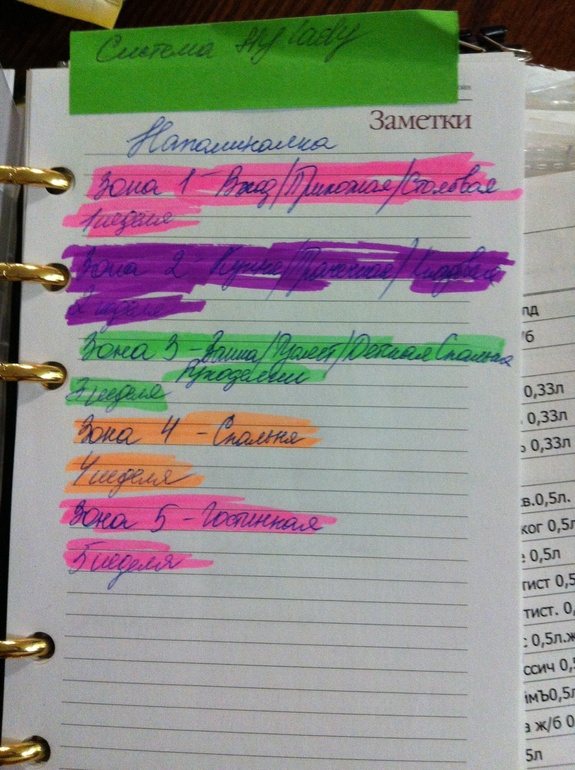 Система fly lady
Заметки
Напоминалка
Зона 1 - Вход/Прихожая/Столовая
1 неделя
Зона 2 - Кухня/Прачечная/Кладовая
2 неделя
Зона 3 - Ванна/Туалет/Детская Спальня
Рукоделии
3 неделя
Зона 4 - Спальня
4 неделя
Зона 5 - Гостинная
5 неделя
0,33л
0,33л
0,33л
кв.0,5л.
ког 0,5л
0,5л
тист 0,5л
тист. 0,
0,5л.ж
ссич 0,5
ймЪ0,5л
а ж/б 0
5л